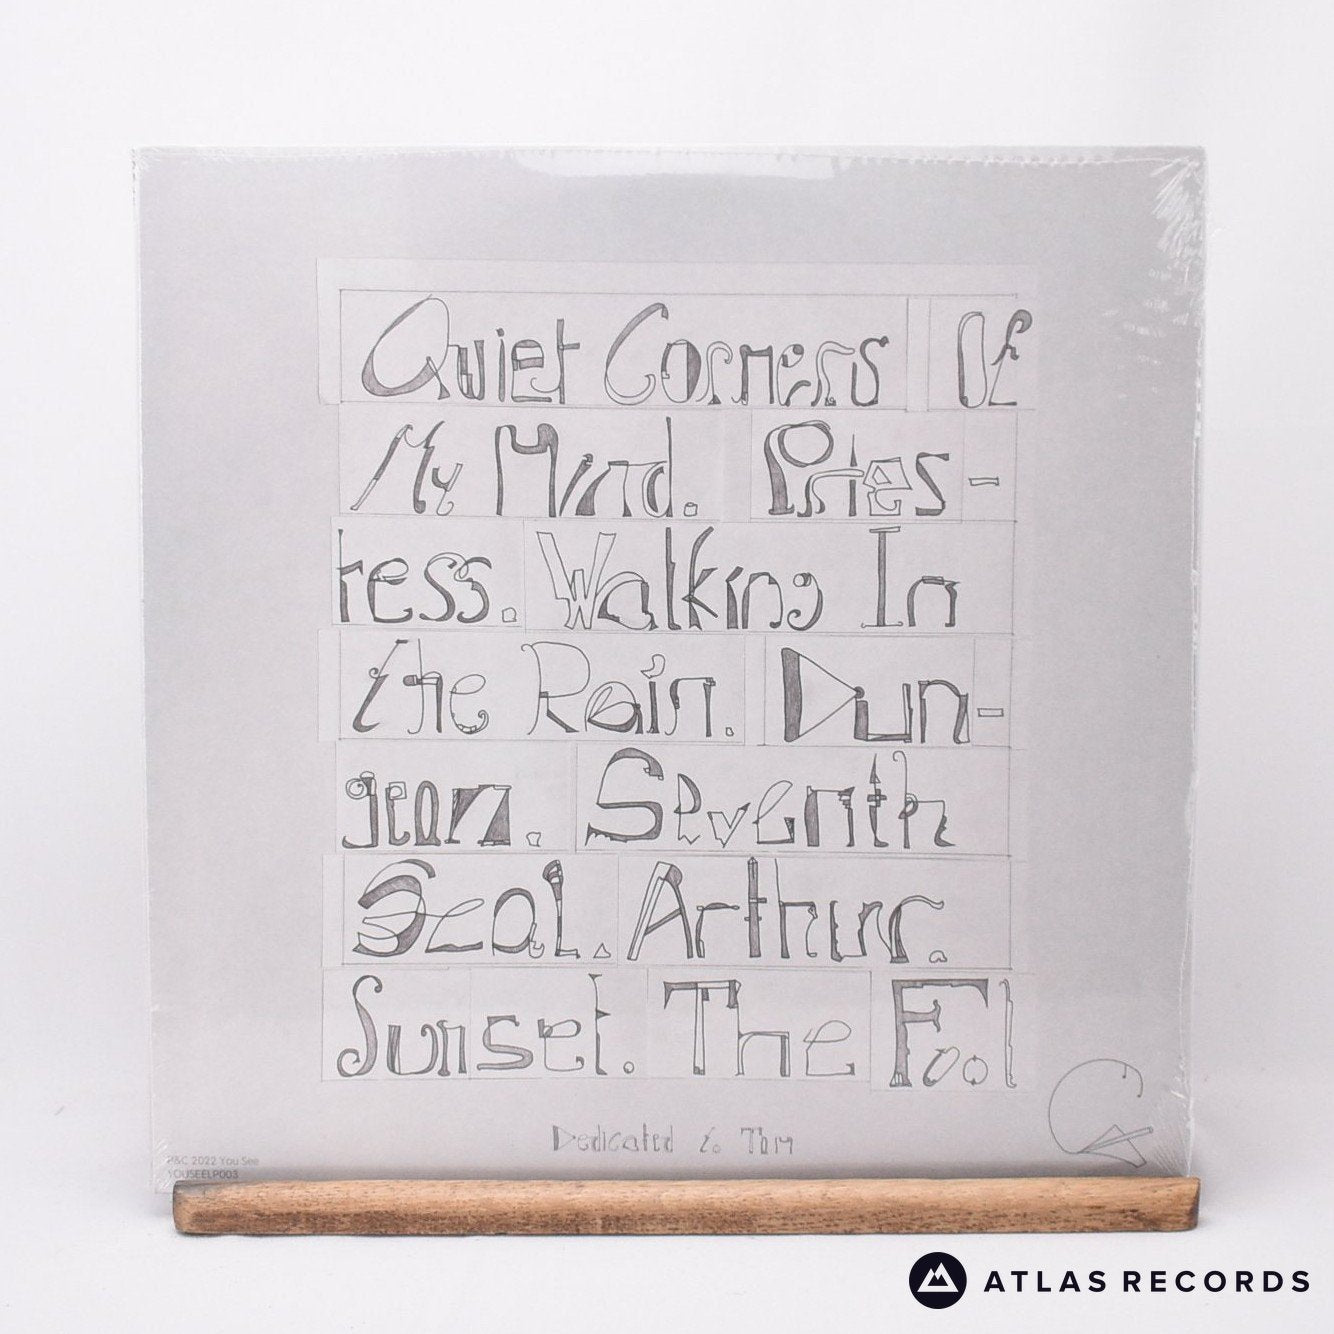 Quiet Corners Of
My Mind. Pries-
tess. Walking In
the Rain. Dun-
geon. Seventh
Seal. Arthur.
Sunset. The Fool
Dedicated to Tom
P&C 2022 You See
YOUSEELP003
ATLAS RECORDS